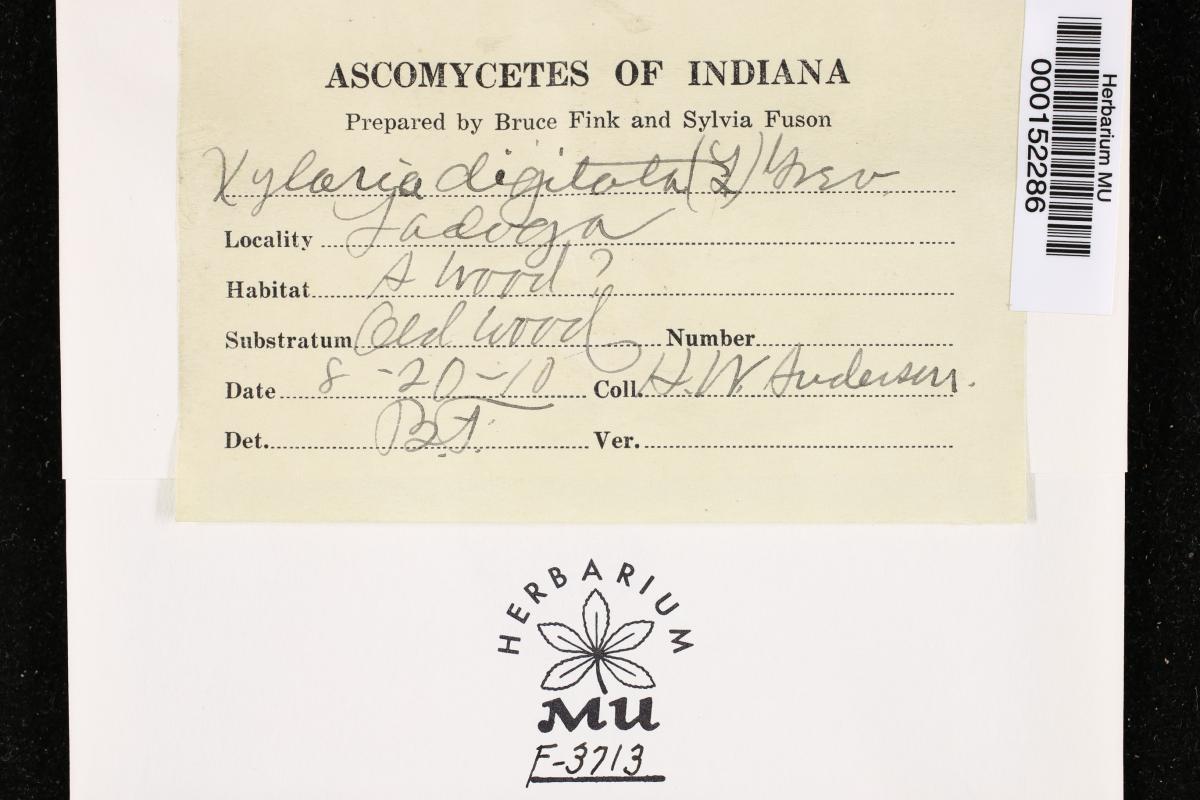 ASCOMYCETES OF INDIANA
Prepared by Bruce Fink and Sylvia Fuson
Xylaria digitata (L) Grev.
Locality Ladoga
Habitat A wood?
Substratum Old wood Number
Date 8-20-10 Coll. H. W. Anderson.
Det. B.F. Ver.
Herbarium MU
000152286
HERBARIUM
MU
F-3713